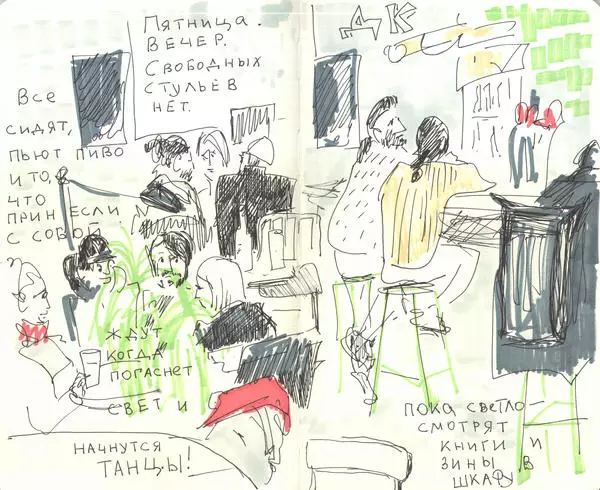 Пятница.
Вечер.
Свободных
стульев
нет.
ДК
Все
сидят,
пьют пиво
и то,
что
принесли
с собой
ждут
когда
погаснет
свет и
начнутся
танцы!
пока светло —
смотрят
книги и
зины в
шкафу